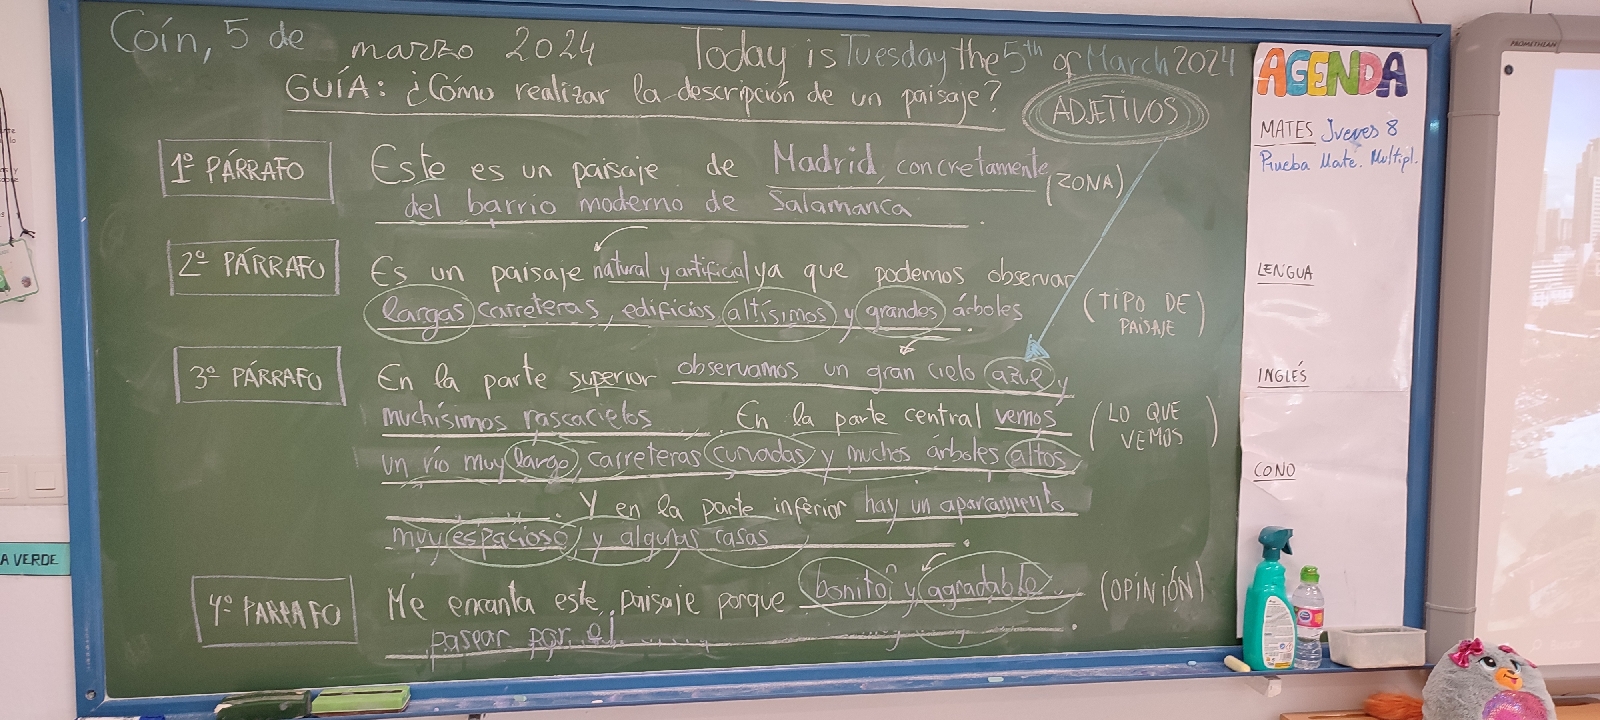 Coín, 5 de marzo 2024 Today is Tuesday the 5th of March 2024
GUÍA: ¿Cómo realizar la descripción de un paisaje? ADJETIVOS
1º PÁRRAFO Este es un paisaje de Madrid, concretamente (ZONA)
del barrio moderno de Salamanca.
2º PÁRRAFO Es un paisaje natural y artificial ya que podemos observar
largas carreteras, edificios altísimos y grandes árboles. (TIPO DE
PAISAJE)
3º PÁRRAFO En la parte superior observamos un gran cielo azul y
muchísimos rascacielos. En la parte central vemos (LO QUE
VEMOS)
un río muy largo, carreteras curvadas y muchos árboles altos
. Y en la parte inferior hay un aparcamiento
muy espacioso y algunas casas.
4º PÁRRAFO Me encanta este paisaje porque bonito y agradable (OPINIÓN)
pasear por él.
AGENDA
MATES Jueves 8
Prueba Mate. Multipl.
LENGUA
INGLÉS
CONO
A VERDE
PROMETHEAN